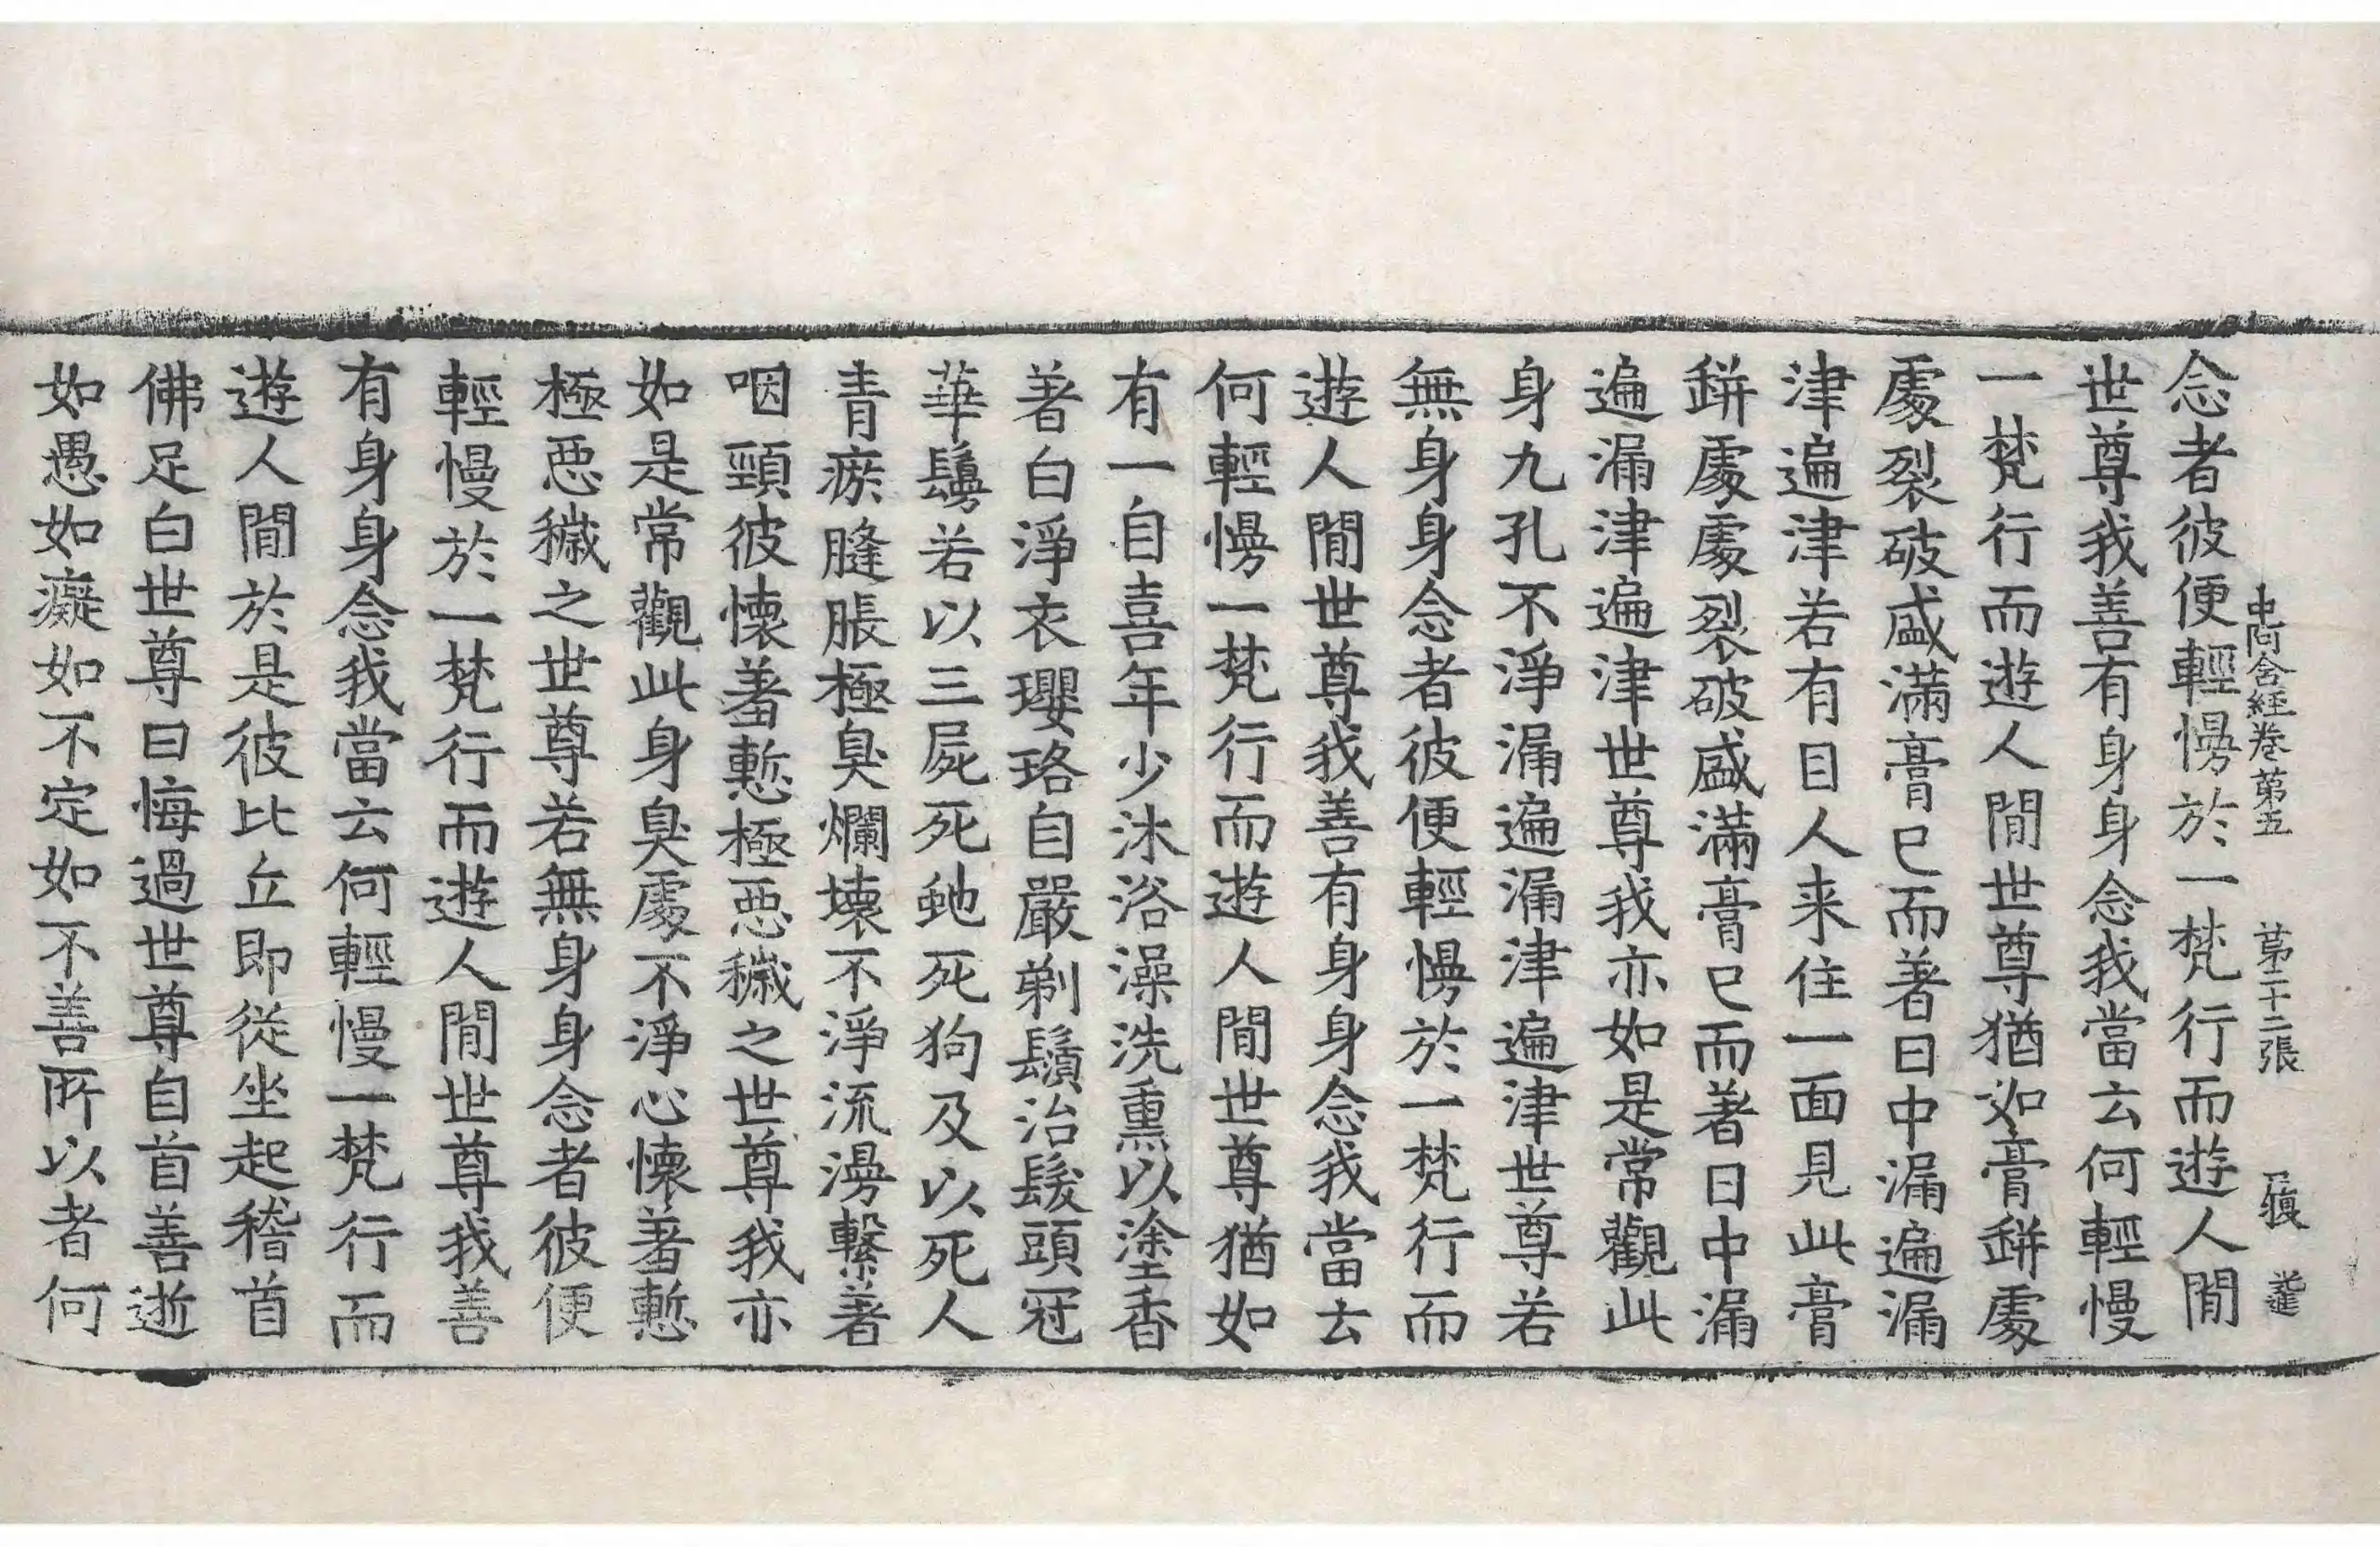 中阿含經卷第五 第二十二張 履
念者彼便輕慢於一梵行而遊人間
世尊我善有身身念我當云何輕慢
一梵行而遊人間世尊猶如膏缾處
處裂破盛滿膏已而著日中漏遍漏
津遍津若有目人来住一面見此膏
缾處處裂破盛滿膏已而著日中漏
遍漏津遍津世尊我亦如是常觀此
身九孔不淨漏遍漏津遍津世尊若
無身身念者彼便輕慢於一梵行而
遊人間世尊我善有身身念我當云
何輕慢一梵行而遊人間世尊猶如
有一自喜年少沐浴澡洗熏以塗香
著白淨衣瓔珞自嚴剃鬚治髮頭冠
華鬘若以三屍死虵死狗及以死人
青瘀膖脹極臭爛壞不淨流漫繫著
咽頸彼懷羞慙極惡穢之世尊我亦
如是常觀此身臭處不淨心懷羞慙
極惡穢之世尊若無身身念者彼便
輕慢於一梵行而遊人間世尊我善
有身身念我當云何輕慢一梵行而
遊人間於是彼比丘即從坐起稽首
佛足白世尊曰悔過世尊自首善逝
如愚如癡如不定如不善所以者何